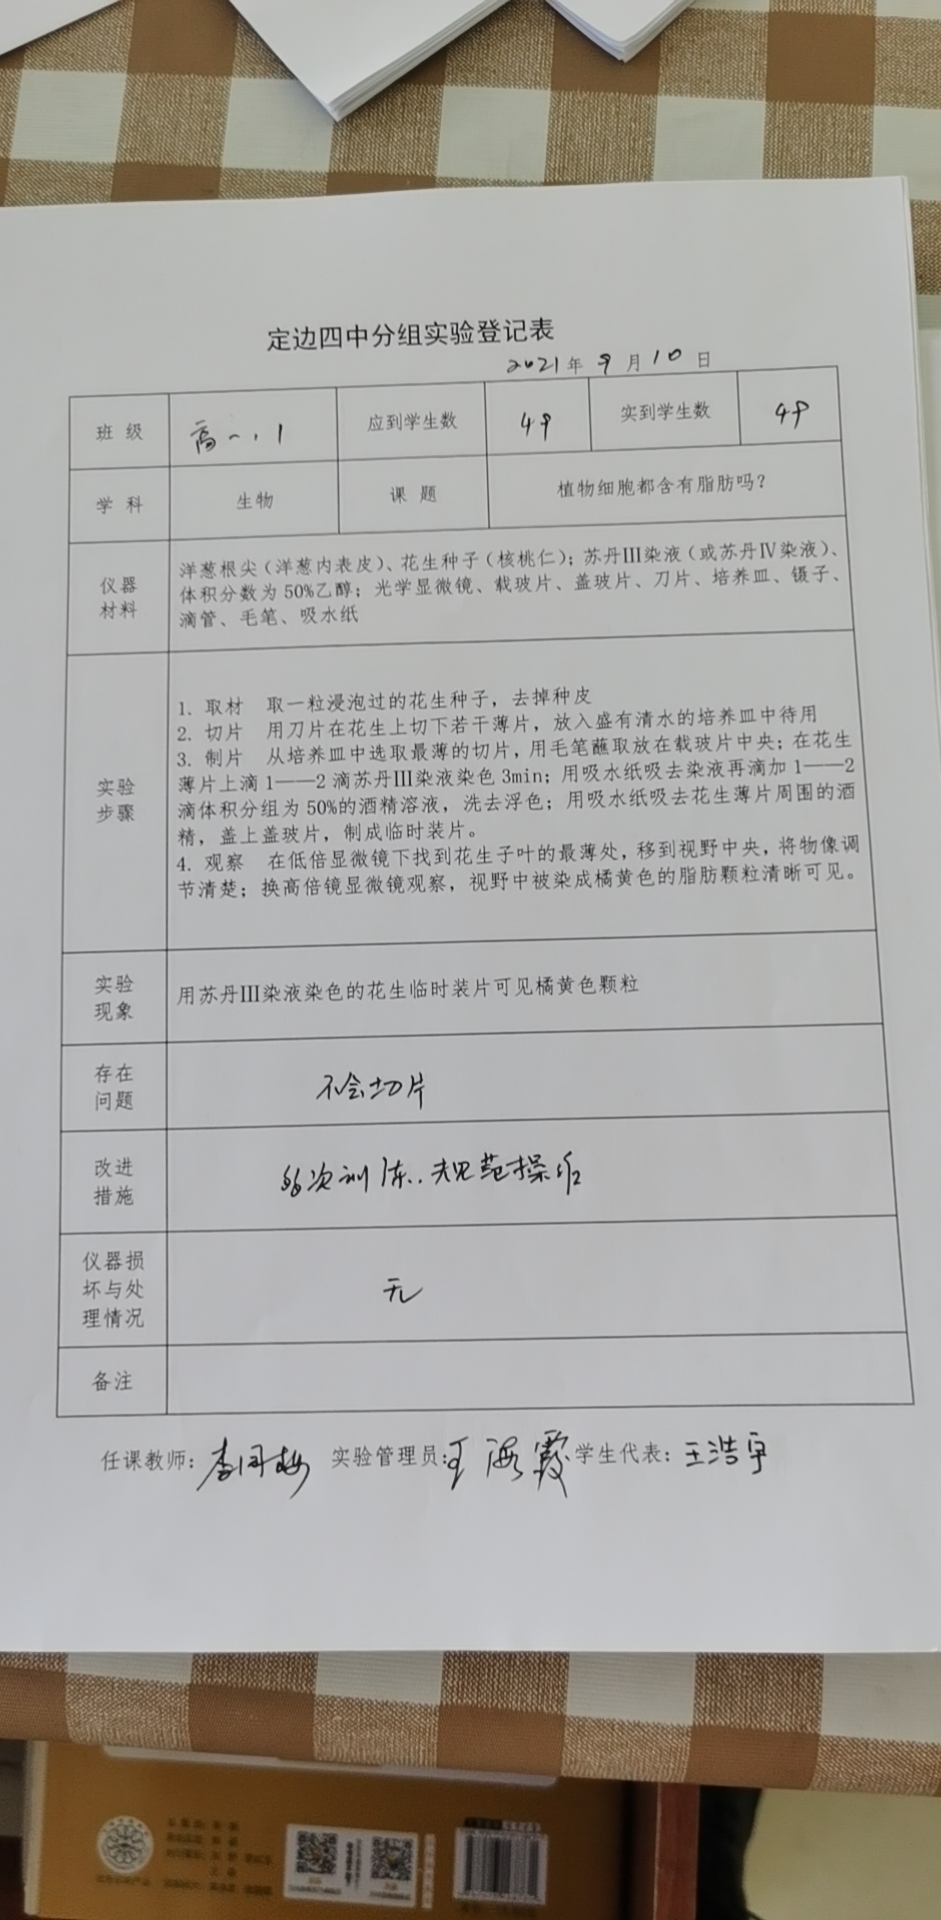 定边四中分组实验登记表
2021年 9 月 10 日
班 级 高一.1 应到学生数 49 实到学生数 49
学 科 生物 课 题 植物细胞都含有脂肪吗?
仪器
材料
洋葱根尖(洋葱内表皮)、花生种子(核桃仁);苏丹III染液(或苏丹IV染液)、
体积分数为 50%乙醇;光学显微镜、载玻片、盖玻片、刀片、培养皿、镊子、
滴管、毛笔、吸水纸
实验
步骤
1. 取材 取一粒浸泡过的花生种子,去掉种皮
2. 切片 用刀片在花生上切下若干薄片,放入盛有清水的培养皿中待用
3. 制片 从培养皿中选取最薄的切片,用毛笔蘸取放在载玻片中央;在花生
薄片上滴 1——2 滴苏丹III染液染色 3min;用吸水纸吸去染液再滴加 1——2
滴体积分组为 50%的酒精溶液,洗去浮色;用吸水纸吸去花生薄片周围的酒
精,盖上盖玻片,制成临时装片。
4. 观察 在低倍显微镜下找到花生子叶的最薄处,移到视野中央,将物像调
节清楚;换高倍镜显微镜观察,视野中被染成橘黄色的脂肪颗粒清晰可见。
实验
现象
用苏丹III染液染色的花生临时装片可见橘黄色颗粒
存在
问题
不会切片
改进
措施
多次训练..规范操作
仪器损
坏与处
理情况
无
备注
任课教师: 实验管理员:王海霞 学生代表:王浩宇